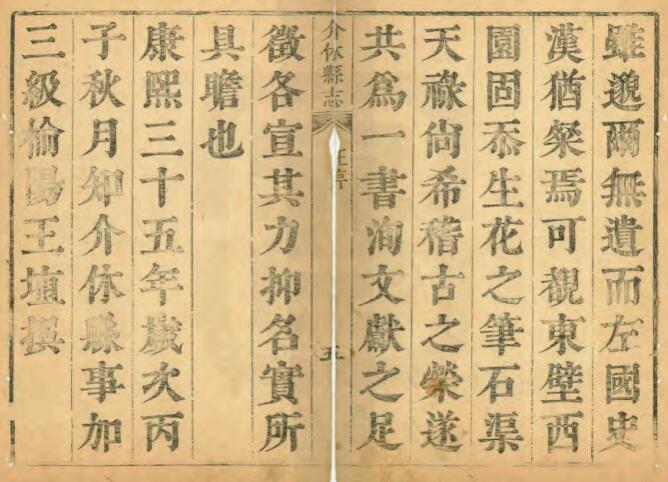 雖邈爾無遺而左國史
漢猶粲焉可觀東壁西
園固忝生花之筆石渠
天祿尚希稽古之榮遂
共為一書洵文獻之足
介休縣志
王序
五
徵各宣其力抑名實所
具瞻也
康熙三十五年歲次丙
子秋月知介休縣事加
三級榆陽王埴撰